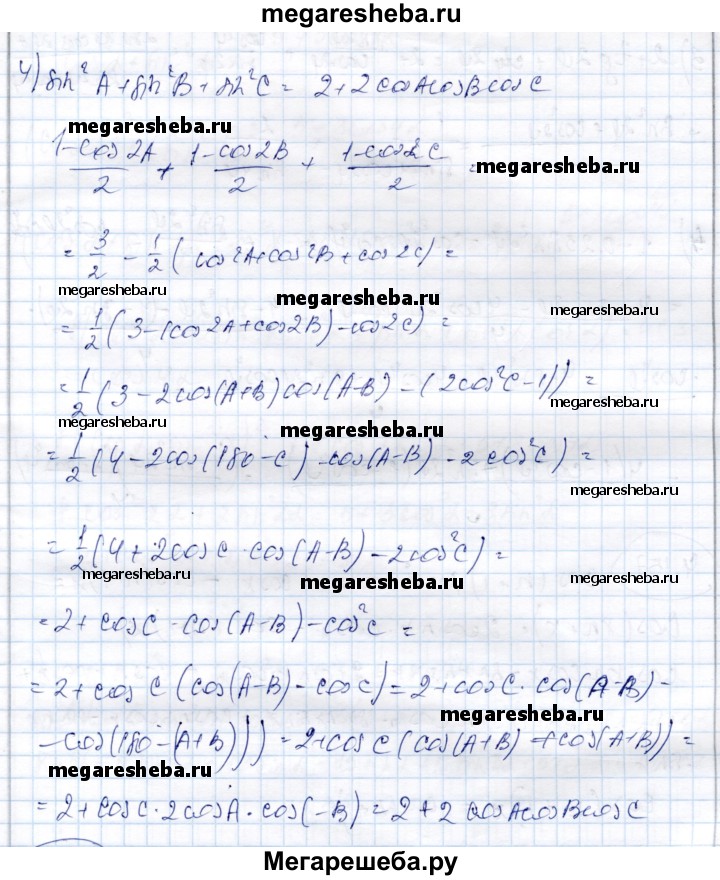 megaresheba.ru
4) sin²A + sin²B + sin²C = 2 + 2 cosAcosBcosC
megaresheba.ru
1-cos2A/2 + 1-cos2B/2 + 1-cos2C/2 =
megaresheba.ru
= 3/2 - 1/2 (cos2A+cos2B+cos2C) =
megaresheba.ru
megaresheba.ru
= 1/2 (3-(cos2A+cos2B)-cos2C) =
megaresheba.ru
= 1/2 (3-2cos(A+B)cos(A-B) - (2cos²C-1)) =
megaresheba.ru
megaresheba.ru
megaresheba.ru
= 1/2 (4-2cos(180-C) ·cos(A-B) -2cos²C) =
megaresheba.ru
= 1/2 (4+2cosC·cos(A-B)-2cos²C) =
megaresheba.ru
megaresheba.ru
megaresheba.ru
= 2+cosC·cos(A-B)-cos²C =
= 2+cosC(cos(A-B)-cosC) = 2+cosC·cos(A-B)-
megaresheba.ru
-cos(180-(A+B))) = 2+cosC(cos(A+B)+cos(A+B)) =
megaresheba.ru
= 2+cosC·2cosA·cos(-B) = 2+2cosAcosBcosC
Мегарешеба.ру